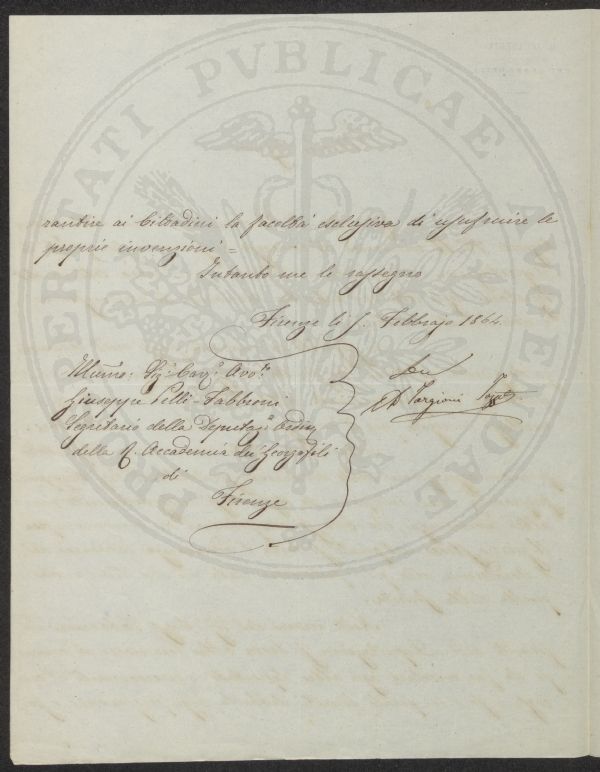 PROSPERITATI PVBLICAE AVGENDAE
rantire ai Cittadini la facoltà esclusiva di usufruire le
proprie invenzioni =
Intanto me le rassegno
Firenze li 5. Febbrajo 1864.
Illumo: Sig: Cav: Avvto
Giuseppe Pelli-Fabbroni
Segretario della Deputazi Ordin
della R. Accademia dei Georgofili
di
Firenze
Dev
Targioni Tozzetti